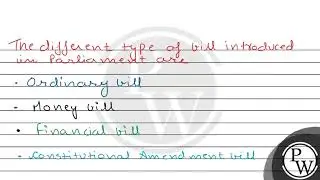 The different type of bill introduced
in Parliament are
- Ordinary bill
- Money bill
• Financial bill
- Constitutional Amendment bill
PW
PW